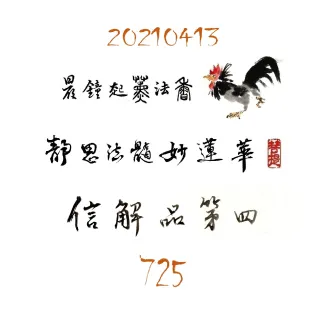 20210413
晨鐘起薰法香
靜思法髓妙蓮華
信解品第四
725